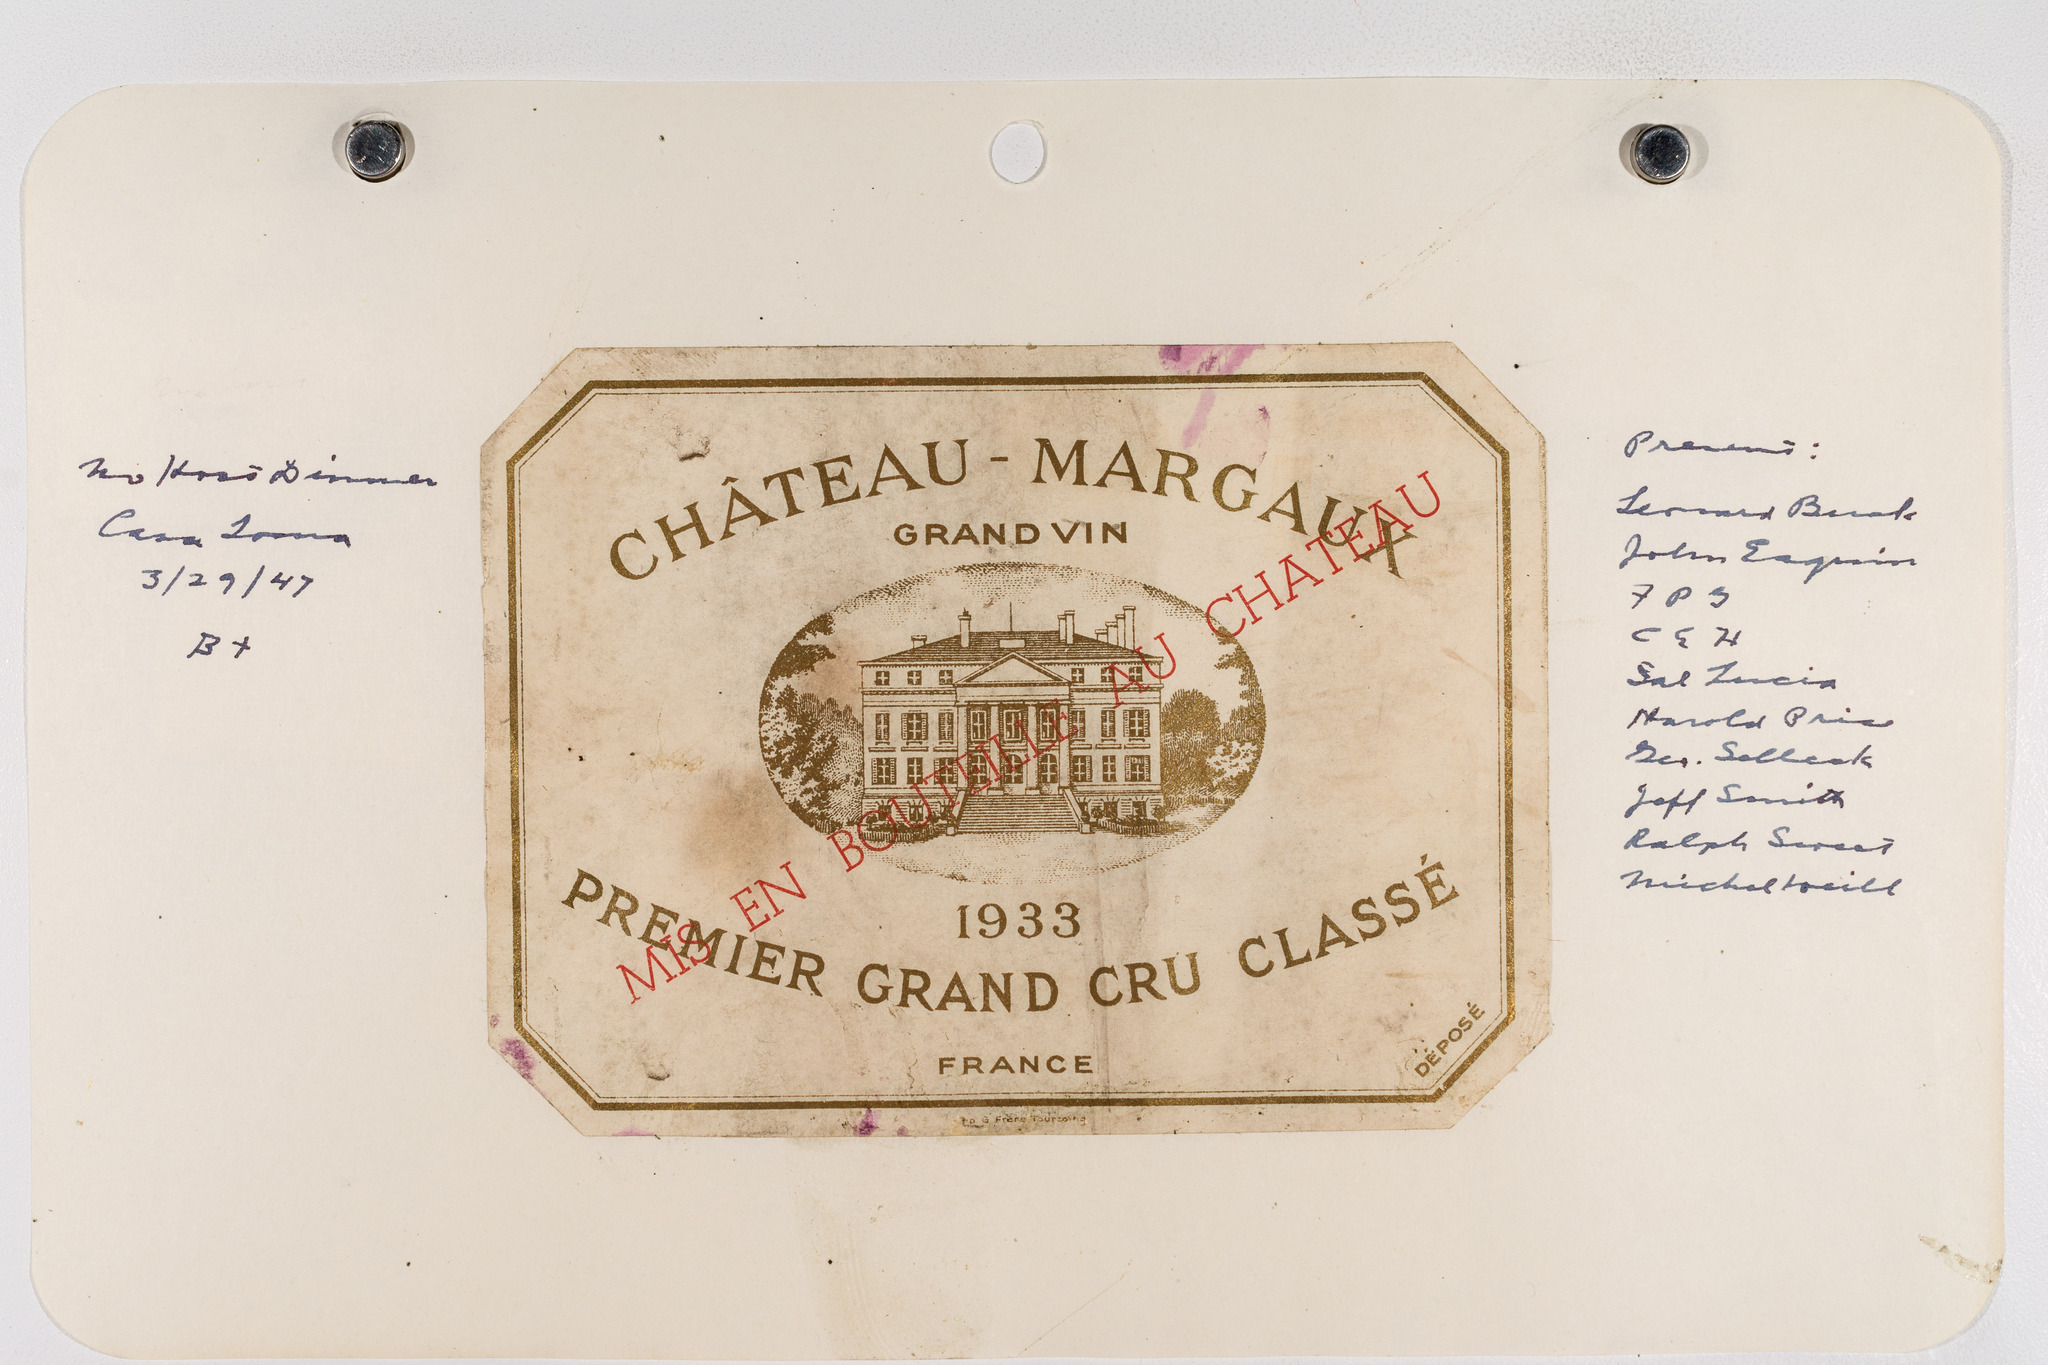 No Host Dinner
Casa Loma
3/29/47
B+
CHÂTEAU - MARGAUX
GRAND VIN
MIS EN BOUTEILLE AU CHATEAU
1933
PREMIER GRAND CRU CLASSÉ
FRANCE
DÉPOSÉ
Present:
Leonard Buck
John Esquin
F P G
C E H
Sal Lucia
Harold Price
Geo. Selleck
Jeff Smith
Ralph Sweet
Michel Weill